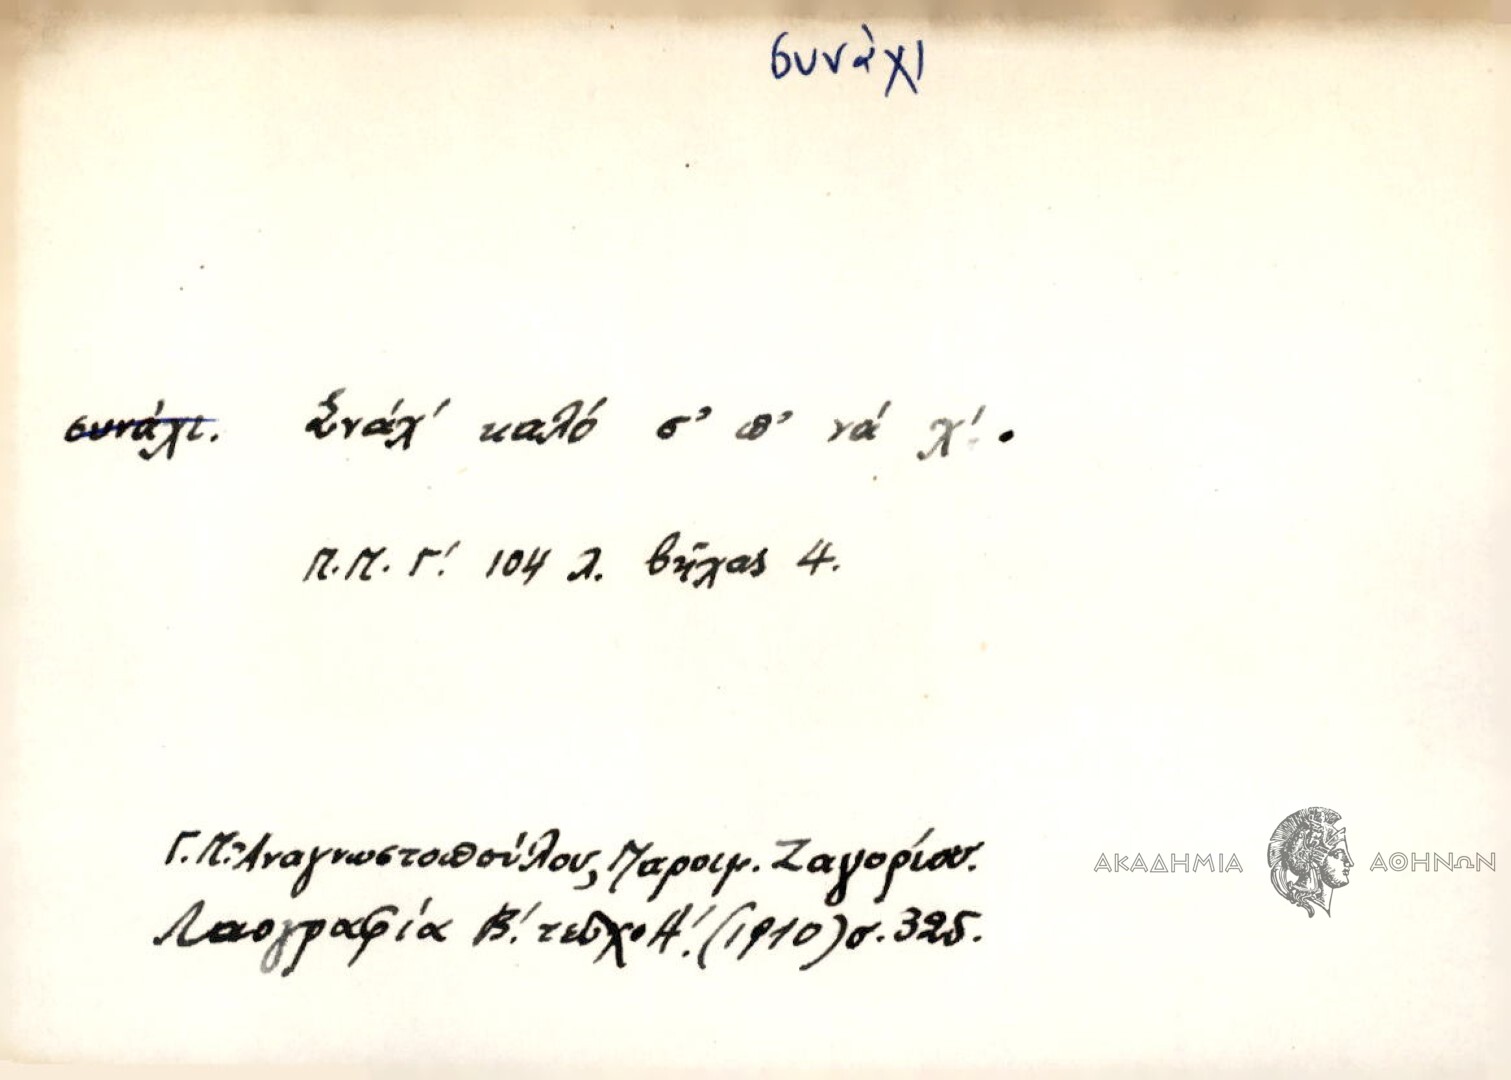 συνάχι
συνάχι. Σνάχ' καλό σ' π' νά χ'.
Π.Π. Γ'. 104 λ. βῆχας 4.
Γ. Π. Ἀναγνωστοπούλου, Παροιμ. Ζαγορίου.
Λαογραφία Β'. τεῦχο Α'. (1910) σ. 325.
ΑΚΑΔΗΜΙΑ ΑΘΗΝΩΝ